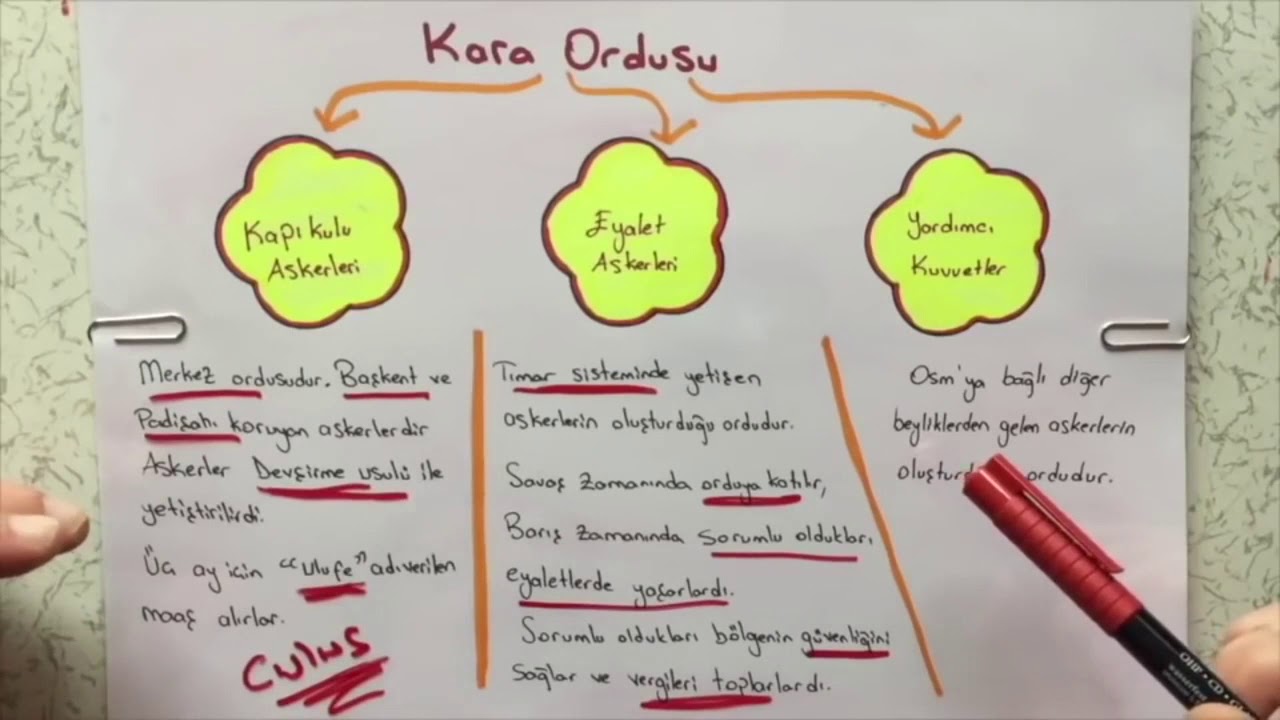 Kara Ordusu
Kapıkulu
Askerleri
Eyalet
Askerleri
Yardımcı
Kuvvetler
Merkez ordusudur. Başkent ve
Padişahı koruyan askerlerdir
Askerler Devşirme usulü ile
yetiştirilirdi.
Üç ay için "Ulufe" adı verilen
maaş alırlar.
Culus
Tımar sisteminde yetişen
askerlerin oluşturduğu ordudur.
Savaş zamanında orduya katılır,
Barış zamanında sorumlu oldukları
eyaletlerde yaşarlardı.
Sorumlu oldukları bölgenin güvenliğini
sağlar ve vergileri toplarlardı.
Osm'ya bağlı diğer
beyliklerden gelen askerlerin
ordudur.
OHP · CD